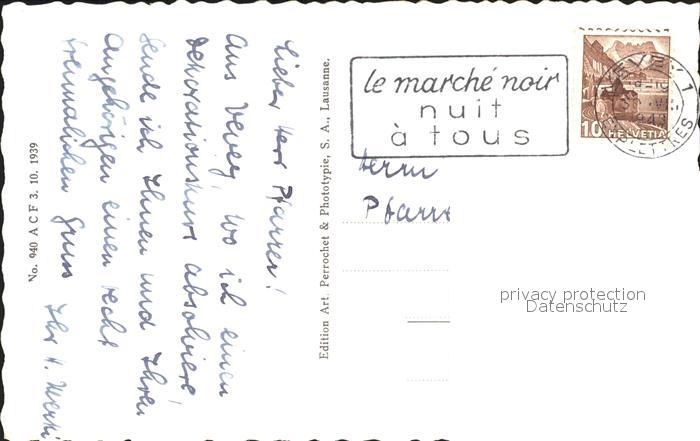 Lieber Herr Pfarrer!
Aus Vevey, wo ich einen
Dekorationskurs absolviere,
sende ich Ihnen und Ihren
Angehörigen einen recht
freundlichen Gruss
Ihr H.
No. 940 A C F 3. 10. 1939
Edition Art. Perrochet & Phototypie, S. A., Lausanne.
le marché noir
nuit
à tous
VEVEY 1
LETTRES
10 HELVETIA
Herrn
Pfarr
privacy protection
Datenschutz